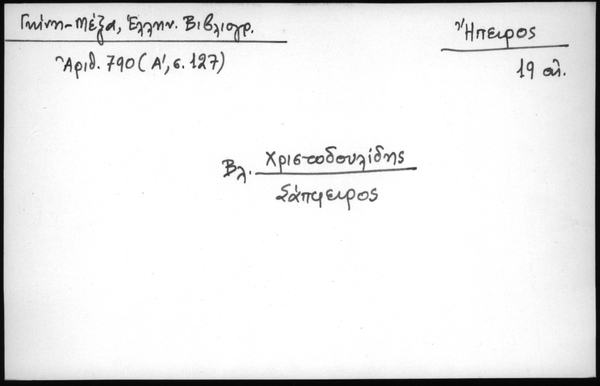 Γκίνη-Μέξα, Ἑλλην. Βιβλιογρ.
Ἀριθ. 790 (Α', σ. 127)
Ἤπειρος
19 αἰ.
Βλ. Χριστοδουλίδης
Σάπφειρος